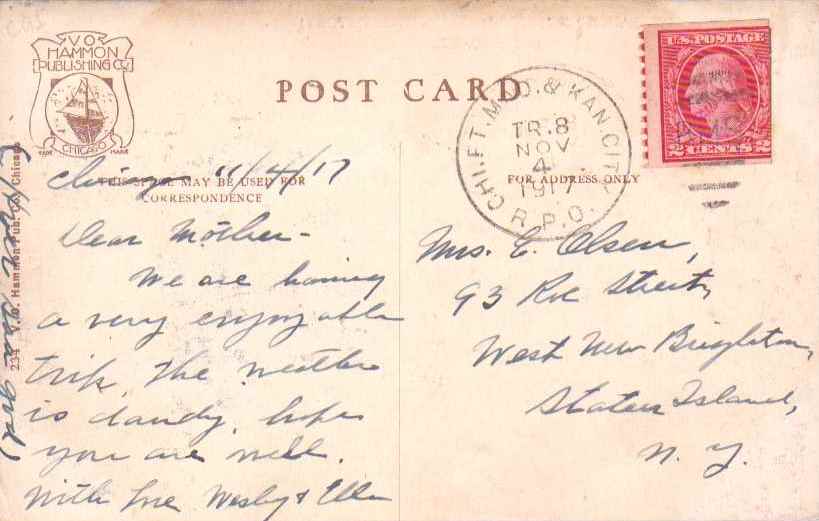 V.O.
HAMMON
PUBLISHING CO.
TRADE MARK
CHICAGO
POST CARD
THIS SPACE MAY BE USED FOR
CORRESPONDENCE
FOR ADDRESS ONLY
234 V. O. Hammon Pub. Co., Chicago
CHI. FT. MAD. & KAN. CITY
TR. 8
NOV
4
1917
R.P.O.
U.S. POSTAGE
2 CENTS 2
Chicago 11/4/17
Dear Mother -
We are having
a very enjoyable
trip, the weather
is dandy, hope
you are well.
With love Wesley & Ella
Mrs. C. Olsen,
93 Roe Street,
West New Brighton,
Staten Island,
N. Y.